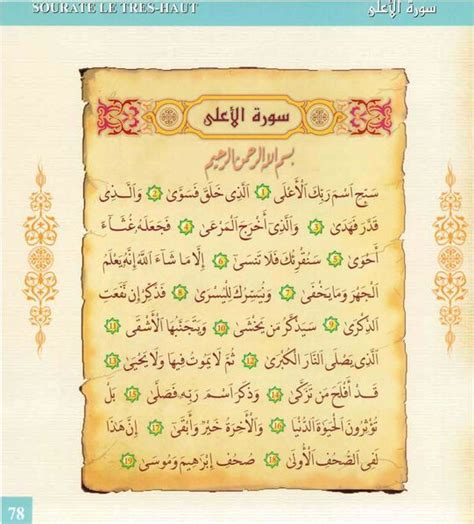 SOURATE LE TRES-HAUT سورة الأعلى
سورة الأعلى
بسم الله الرحمن الرحيم
سَبِّحِ اسْمَ رَبِّكَ الْأَعْلَى 1 الَّذِي خَلَقَ فَسَوَّىٰ 2 وَالَّذِي
قَدَّرَ فَهَدَىٰ 3 وَالَّذِي أَخْرَجَ الْمَرْعَىٰ 4 فَجَعَلَهُ غُثَاءً
أَحْوَىٰ 5 سَنُقْرِئُكَ فَلَا تَنسَىٰ 6 إِلَّا مَا شَاءَ اللَّهُ إِنَّهُ يَعْلَمُ
الْجَهْرَ وَمَا يَخْفَىٰ 7 وَنُيَسِّرُكَ لِلْيُسْرَىٰ 8 فَذَكِّرْ إِن نَّفَعَتِ
الذِّكْرَىٰ 9 سَيَذَّكَّرُ مَن يَخْشَىٰ 10 وَيَتَجَنَّبُهَا الْأَشْقَى 11
الَّذِي يَصْلَى النَّارَ الْكُبْرَىٰ 12 ثُمَّ لَا يَمُوتُ فِيهَا وَلَا يَحْيَىٰ 13
قَدْ أَفْلَحَ مَن تَزَكَّىٰ 14 وَذَكَرَ اسْمَ رَبِّهِ فَصَلَّىٰ 15 بَلْ
تُؤْثِرُونَ الْحَيَوٰةَ الدُّنْيَا 16 وَالْآخِرَةُ خَيْرٌ وَأَبْقَىٰ 17 إِنَّ هَٰذَا
لَفِي الصُّحُفِ الْأُولَىٰ 18 صُحُفِ إِبْرَٰهِيمَ وَمُوسَىٰ 19
78